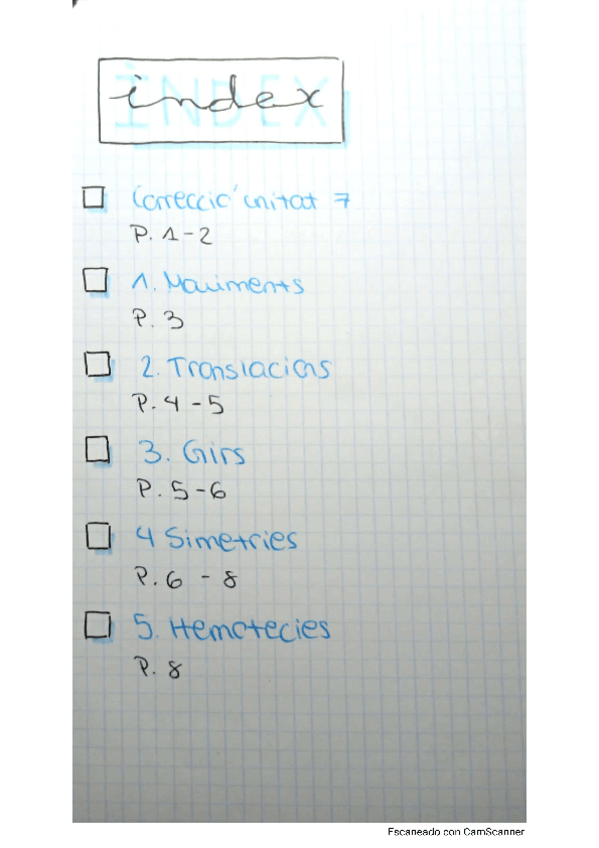 index
Correcció unitat 7
P. 1-2
1. Moviments
P. 3
2. Translacions
P. 4-5
3. Girs
P. 5-6
4 Simetries
P. 6 - 8
5. Hemotecies
P. 8
Escaneado con CamScanner